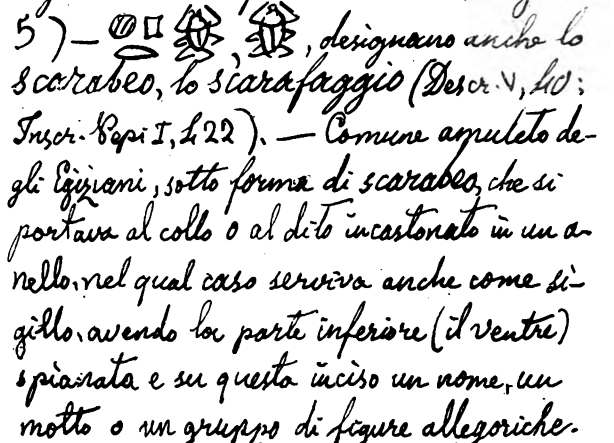 5) — 𓐍𓊪𓆣, 𓆣, designano anche lo
scarabeo, lo scarafaggio (Descr. V, 40;
Inscr. Pepi I, l. 422). — Comune amuleto de-
gli Egiziani, sotto forma di scarabeo, che si
portava al collo o al dito incastonato in un a-
nello, nel qual caso serviva anche come si-
gillo, avendo la parte inferiore (il ventre)
spianata e su questa inciso un nome, un
motto o un gruppo di figure allegoriche.